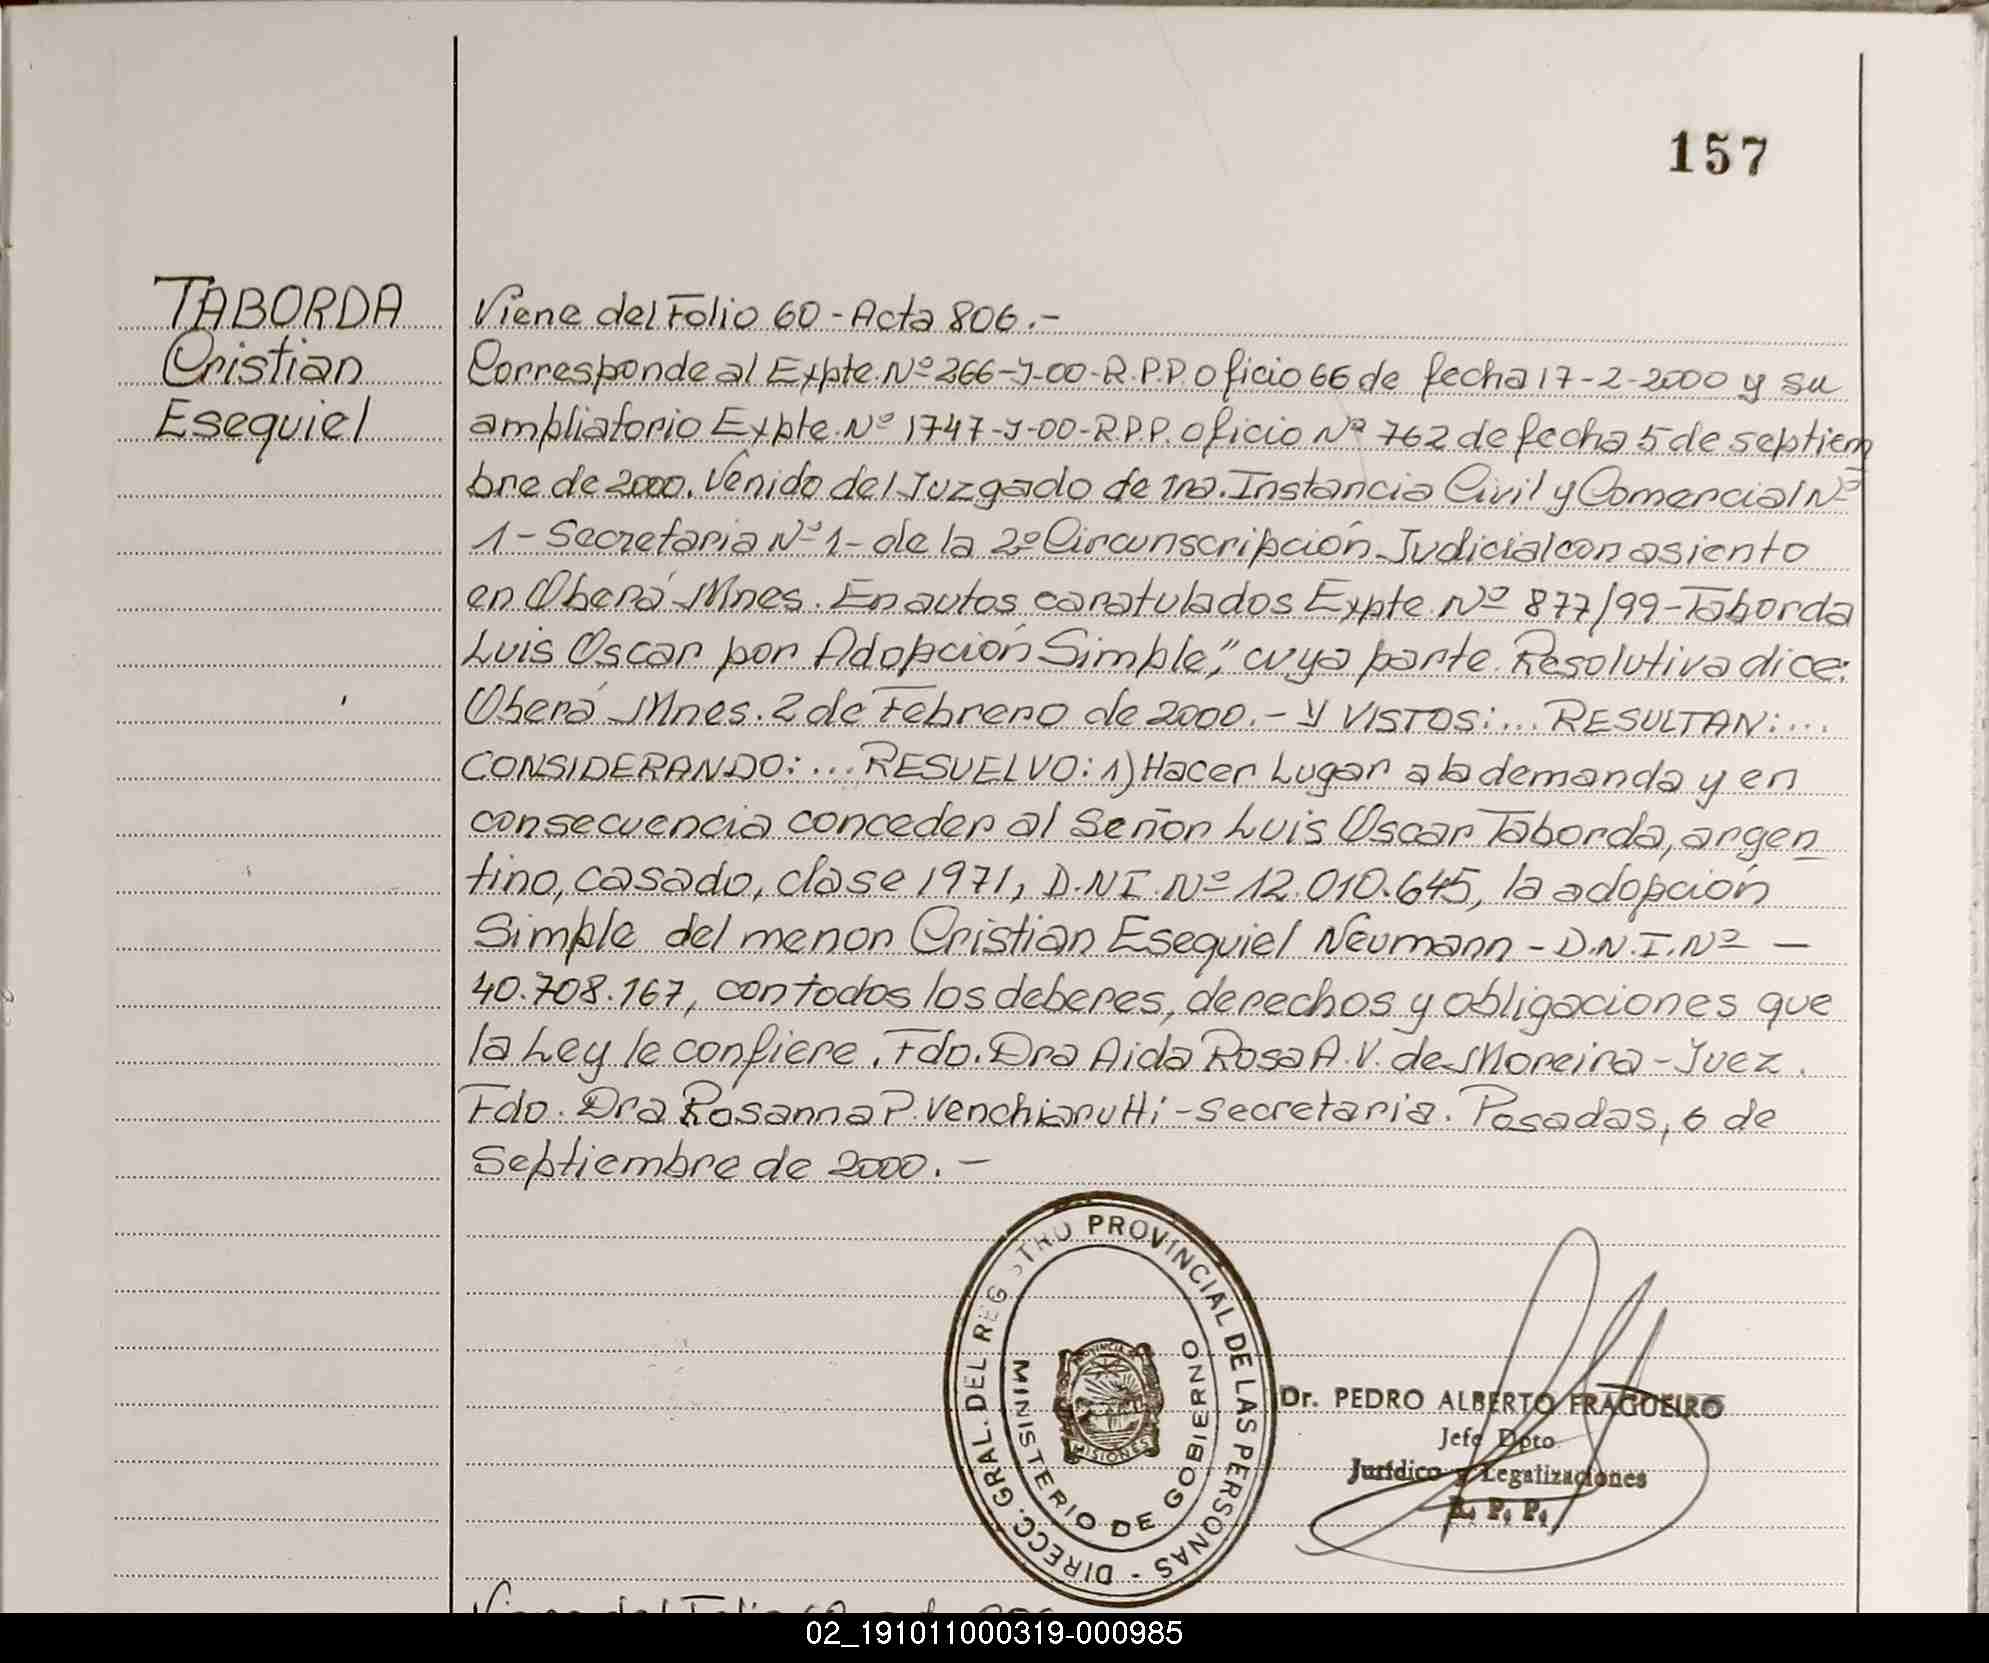 157
TABORDA
Cristian
Esequiel
Viene del Folio 60 - Acta 806.-
Corresponde al Expte. Nº 266-J-00-R.P.P. Oficio 66 de fecha 17-2-2000 y su
ampliatorio Expte. Nº 1747-J-00-R.P.P. oficio Nº 762 de fecha 5 de septiem
bre de 2000. Venido del Juzgado de 1ra. Instancia Civil y Comercial Nº
1 - Secretaria Nº 1 - de la 2º Circunscripción Judicial con asiento
en Oberá Mnes. En autos caratulados Expte. Nº 877/99 - Taborda
Luis Oscar por Adopción Simple," cuya parte Resolutiva dice:
Oberá Mnes. 2 de Febrero de 2000.- Y VISTOS:... RESULTAN:...
CONSIDERANDO:... RESUELVO: 1) Hacer Lugar a la demanda y en
consecuencia conceder al Señor Luis Oscar Taborda, argen
tino, casado, clase 1971, D.N.I. Nº 12.010.645, la adopción
Simple del menor Cristian Esequiel Neumann - D.N.I. Nº -
40.708.167, con todos los deberes, derechos y obligaciones que
la Ley le confiere. Fdo. Dra Aida Rosa A. V. de Moreira - Juez.
Fdo. Dra Rosanna P. Venchiarutti - Secretaria. Posadas, 6 de
Septiembre de 2000.-
DIRECC. GRAL. DEL REGISTRO PROVINCIAL DE LAS PERSONAS -
MINISTERIO DE GOBIERNO
PROVINCIA
MISIONES
Dr. PEDRO ALBERTO FRAGUEIRO
Jefe Dpto
Jurídico y Legalizaciones
R. P. P.
Viene del Folio 60
02_191011000319-000985